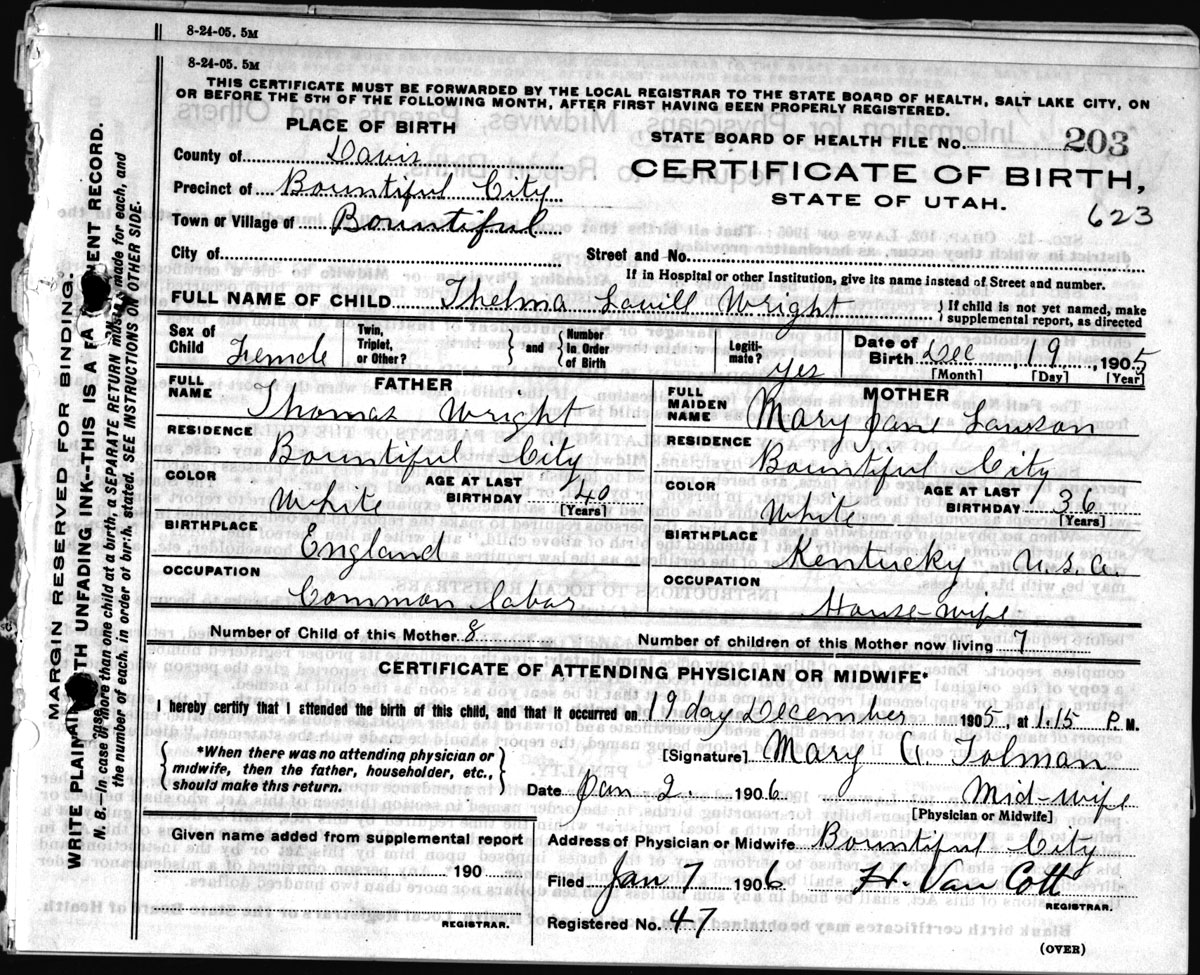 8-24-05. 5M
8-24-05. 5M
THIS CERTIFICATE MUST BE FORWARDED BY THE LOCAL REGISTRAR TO THE STATE BOARD OF HEALTH, SALT LAKE CITY, ON
OR BEFORE THE 5TH OF THE FOLLOWING MONTH, AFTER FIRST HAVING BEEN PROPERLY REGISTERED.
PLACE OF BIRTH
STATE BOARD OF HEALTH FILE No. 203
County of Davis
CERTIFICATE OF BIRTH,
Precinct of Bountiful City
STATE OF UTAH.
623
Town or Village of Bountiful
City of
Street and No.
If in Hospital or other Institution, give its name instead of Street and number.
FULL NAME OF CHILD Thelma Lavill Wright } If child is not yet named, make supplemental report, as directed
Sex of Child Female Twin, Triplet, or Other? } and { Number in Order of Birth Legiti-mate? yes Date of Birth Dec 19, 1905
[Month] [Day] [Year]
FATHER
FULL NAME Thomas Wright
RESIDENCE Bountiful City
COLOR White AGE AT LAST BIRTHDAY 40 [Years]
BIRTHPLACE England
OCCUPATION Common labor
MOTHER
FULL MAIDEN NAME Mary Jane Lawson
RESIDENCE Bountiful City
COLOR White AGE AT LAST BIRTHDAY 36 [Years]
BIRTHPLACE Kentucky U.S.A.
OCCUPATION House-wife
Number of Child of this Mother 8 Number of children of this Mother now living 7
CERTIFICATE OF ATTENDING PHYSICIAN OR MIDWIFE*
I hereby certify that I attended the birth of this child, and that it occurred on 19 day December 1905, at 1.15 P. M.
*When there was no attending physician or
midwife, then the father, householder, etc.,
should make this return.
[Signature] Mary A. Tolman
Date Jan 2. 1906 Mid-wife
[Physician or Midwife]
Given name added from supplemental report
190
REGISTRAR.
Address of Physician or Midwife Bountiful City
Filed Jan 7 1906 H. Van Cott
REGISTRAR.
Registered No. 47
(OVER)
MARGIN RESERVED FOR BINDING.
WRITE PLAIN WITH UNFADING INK--THIS IS A ENT RECORD.
N. B.--In case of more than one child at a birth, a SEPARATE RETURN must be made for each, and
the number of each, in order of birth stated. SEE INSTRUCTIONS ON OTHER SIDE.